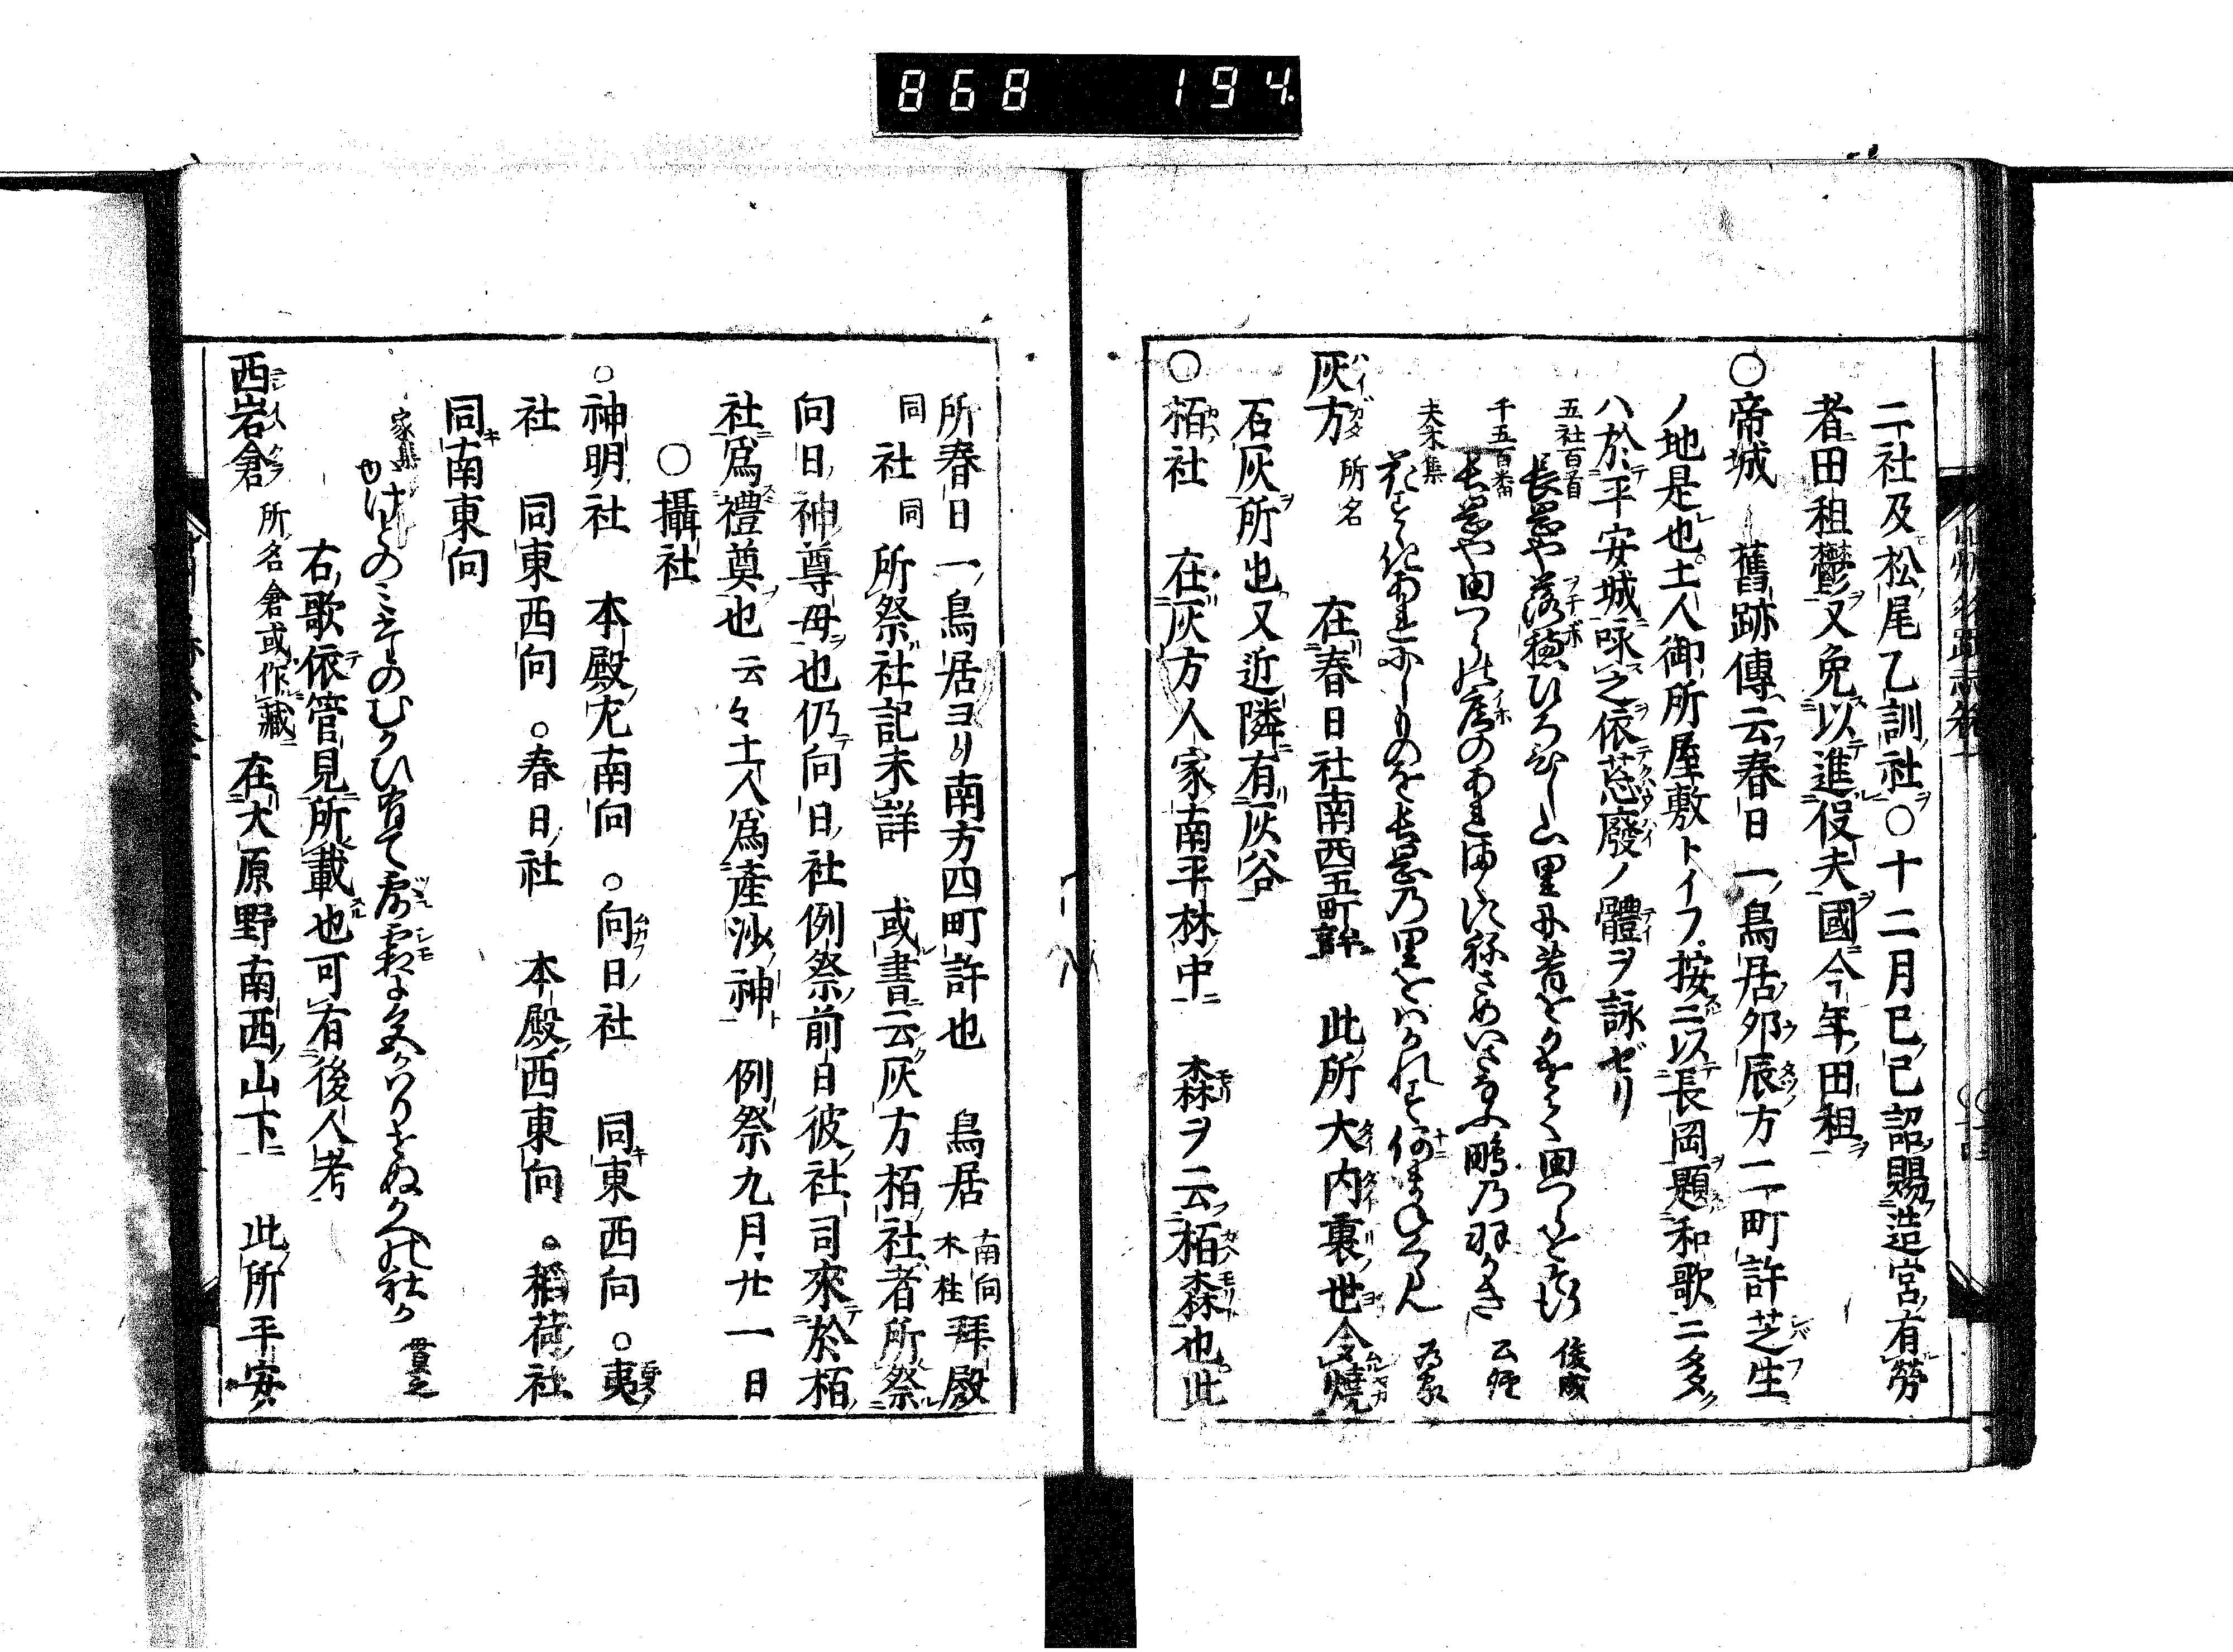 868 194.
二社及松尾乙訓社○十二月已巳詔賜造宮有勞
者田租鬱又免以進役夫國今年田租
○帝城 舊跡傳云春日一鳥居夘辰方二町許芝生
ノ地是也土人御所屋敷トイフ按ニ以長岡題和歌ニ多ク
ハ於平安城咏之依荒廢ノ體ヲ詠ゼリ
五社百首 長岡や落穂ひろひし山里に昔をかけて田つらをそ行 俊成
千五百番 長岡や田つらの庵のあれまくに ねさめいさなふ鴫乃羽かき
夫木集 長岳乃里をはかれす何まねくらん 為家
灰方 所名 在春日社南西五町許 此所大内裏世令燒
石灰所也又近隣有灰谷
○栢社 在灰方人家南平林中 森ヲ云栢森也此
所春日一鳥居ヨリ南方四町許也 鳥居 南向木柱 拜殿
同 社 同 所祭社記未詳 或書云灰方栢社者所祭
向日神尊母也仍向日社例祭前日彼社司來於栢
社爲禮奠也云々土人爲產沙神 例祭九月廿一日
○攝社
○神明社 本殿尢南向 ○向日社 同東西向 ○夷
社 同東西向 ○春日社 本殿西東向 ○稻荷社
同南東向
家集 かけまくのみきりのむかひ有て 露霜に 社か 貫之
右歌依管見所載也可有後人考
西岩倉 所名倉或作藏 在大原野南西山下 此所平安